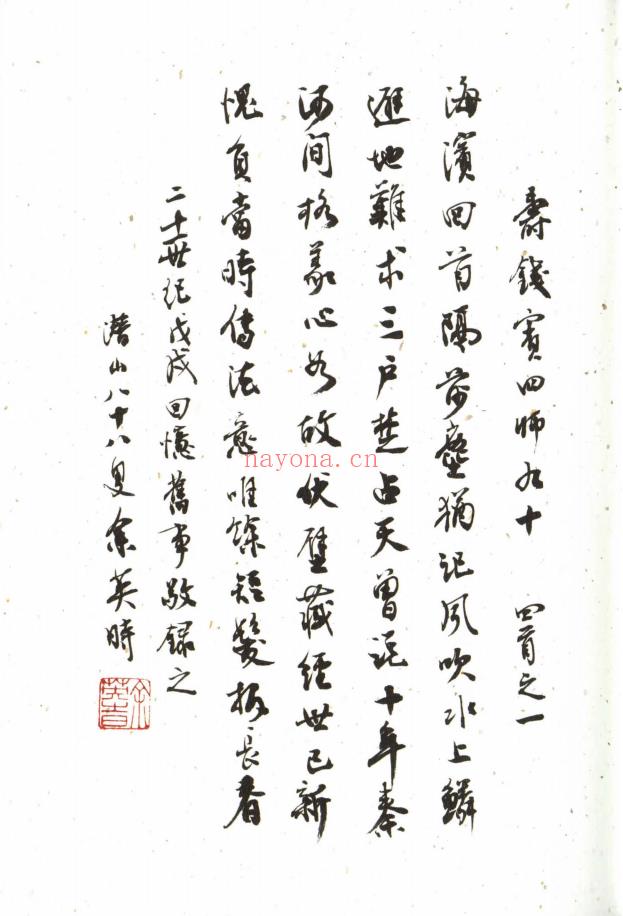 壽錢賓四師九十 四首之一
海濱回首隔前塵猶記風吹水上鱗
避地難求三戶楚占天曾說十年秦
河間格義心如故伏壁藏經世已新
愧負當時傳法意唯餘短髮報長春
二十世紀戊戌回憶舊事敬錄之
潛山八十八叟余英時
余英時
nayona.cn